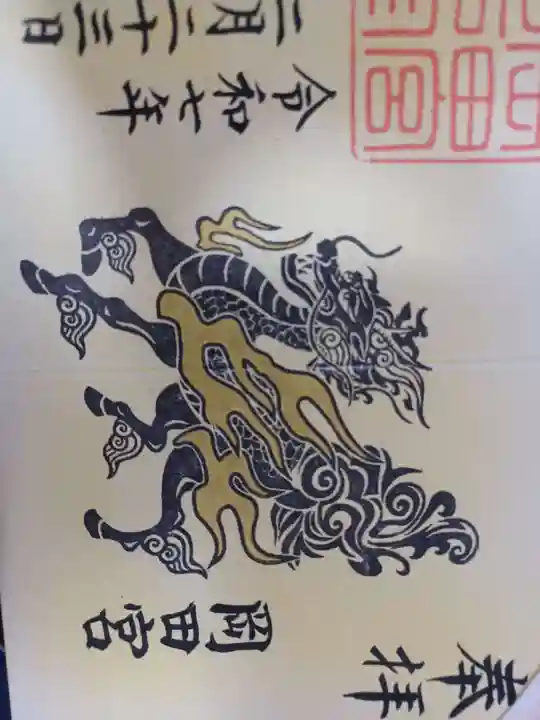 奉拝
岡田宮
令和七年
二月二十三日